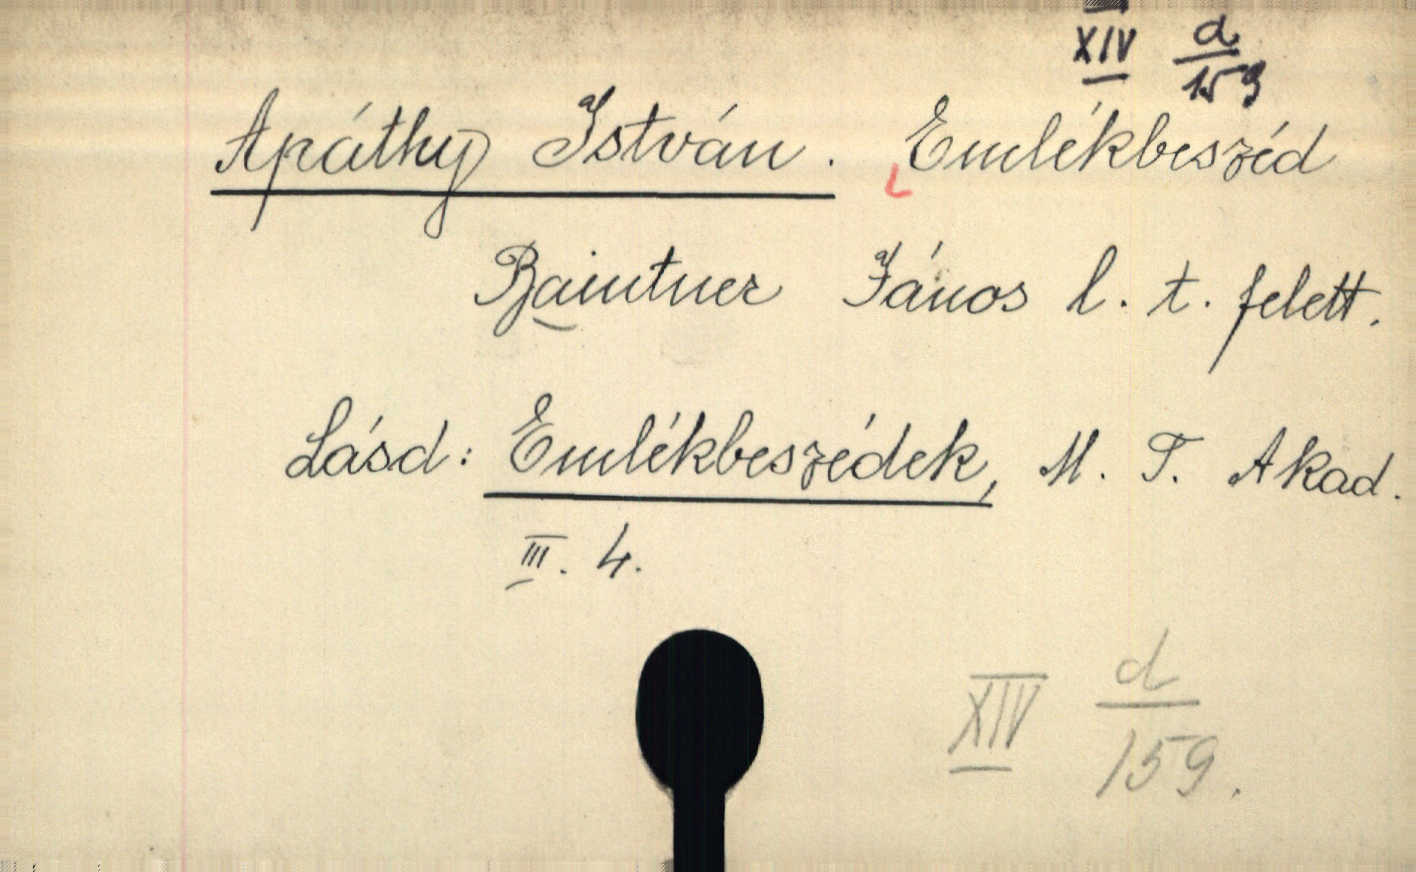 XIV d/159
Apáthy István. Emlékbeszéd
Baintner János l. t. felett.
Lásd: Emlékbeszédek, M. T. Akad.
III. 4.
XIV d/159.